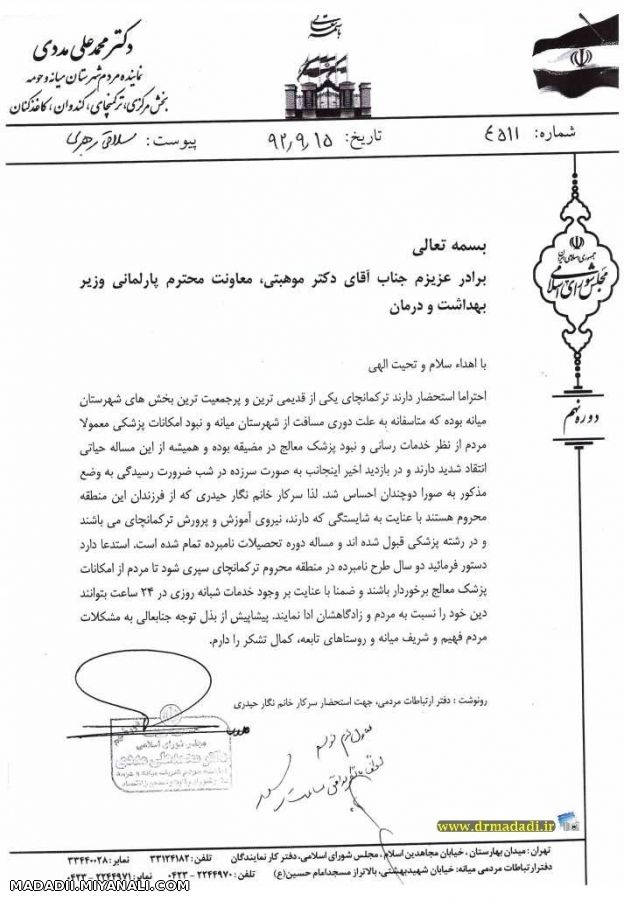 بسمه تعالی
دکتر محمد علی مددی
نماینده مردم شهرستان میانه و حومه
بخش مرکزی، ترکمنچای، کندوان، کاغذکنان
شماره: ۴۵۱۱
تاریخ: ۹۲٫۹٫۱۵
پیوست:
جمهوری اسلامی ایران
مجلس شورای اسلامی
دوره نهم
بسمه تعالی
برادر عزیزم جناب آقای دکتر موهبتی، معاونت محترم پارلمانی وزیر
بهداشت و درمان
با اهداء سلام و تحیت الهی
احتراما استحضار دارند ترکمانچای یکی از قدیمی ترین و پرجمعیت ترین بخش های شهرستان
میانه بوده که متاسفانه به علت دوری مسافت از شهرستان میانه و نبود امکانات پزشکی معمولا
مردم از نظر خدمات رسانی و نبود پزشک معالج در مضیقه بوده و همیشه از این مساله حیاتی
انتقاد شدید دارند و در بازدید اخیر اینجانب به صورت سرزده در شب ضرورت رسیدگی به وضع
مذکور به صورا دوچندان احساس شد. لذا سرکار خانم نگار حیدری که از فرزندان این منطقه
محروم هستند با عنایت به شایستگی که دارند، نیروی آموزش و پرورش ترکمانچای می باشند
و در رشته پزشکی قبول شده اند و مساله دوره تحصیلات نامبرده تمام شده است. استدعا دارد
دستور فرمائید دو سال طرح نامبرده در منطقه محروم ترکمانچای سپری شود تا مردم از امکانات
پزشک معالج برخوردار باشند و ضمنا با عنایت بر وجود خدمات شبانه روزی در ۲۴ ساعت بتوانند
دین خود را نسبت به مردم و زادگاهشان ادا نمایند. پیشاپیش از بذل توجه جنابعالی به مشکلات
مردم فهیم و شریف میانه و روستاهای تابعه، کمال تشکر را دارم.
رونوشت : دفتر ارتباطات مردمی، جهت استحضار سرکار خانم نگار حیدری
مجلس شورای اسلامی
دکتر محمدعلی مددی
www.drmadadi.ir
تهران : میدان بهارستان ، خیابان مجاهدین اسلام ، مجلس شورای اسلامی، دفتر کار نمایندگان تلفن : ۳۳۱۲۴۱۸۲ نمابر: ۳۳۴۴۰۰۲۸
دفتر ارتباطات مردمی میانه: خیابان شهیدبهشتی، بالاتراز مسجدامام حسین(ع) تلفن : ۲۲۴۴۹۷۰ - ۰۴۲۳ نمابر: ۲۲۴۴۹۷۱ - ۰۴۲۳
MADADII.MIYANALI.COM